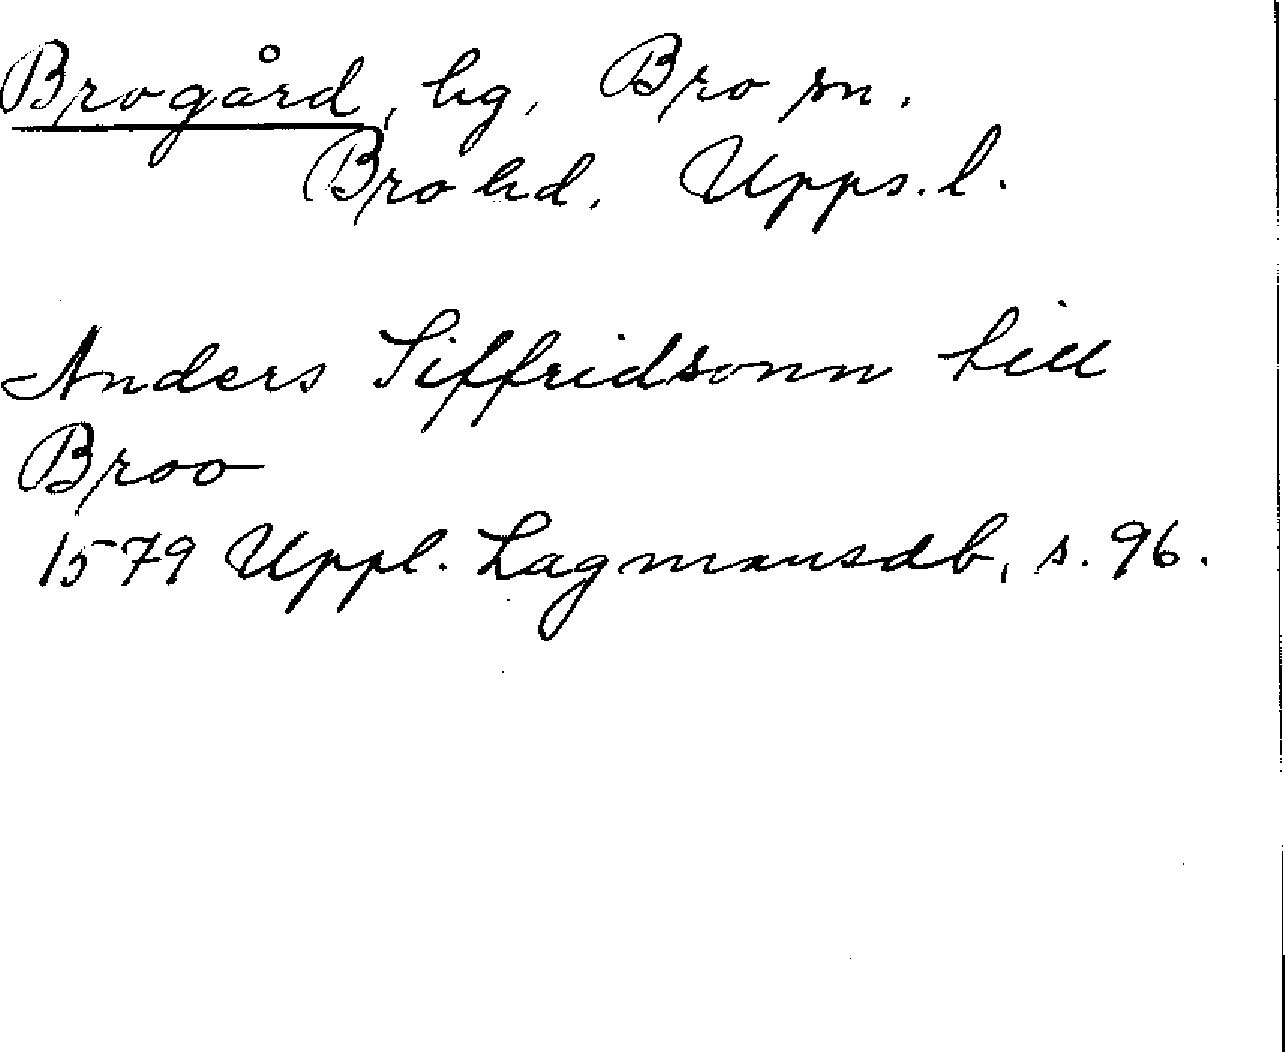 Brogård, hg, Bro sn.
Bro hd. Upps. l.
Anders Siffridsonn till
Broo
1579 Uppl. Lagmansdb, s. 96.